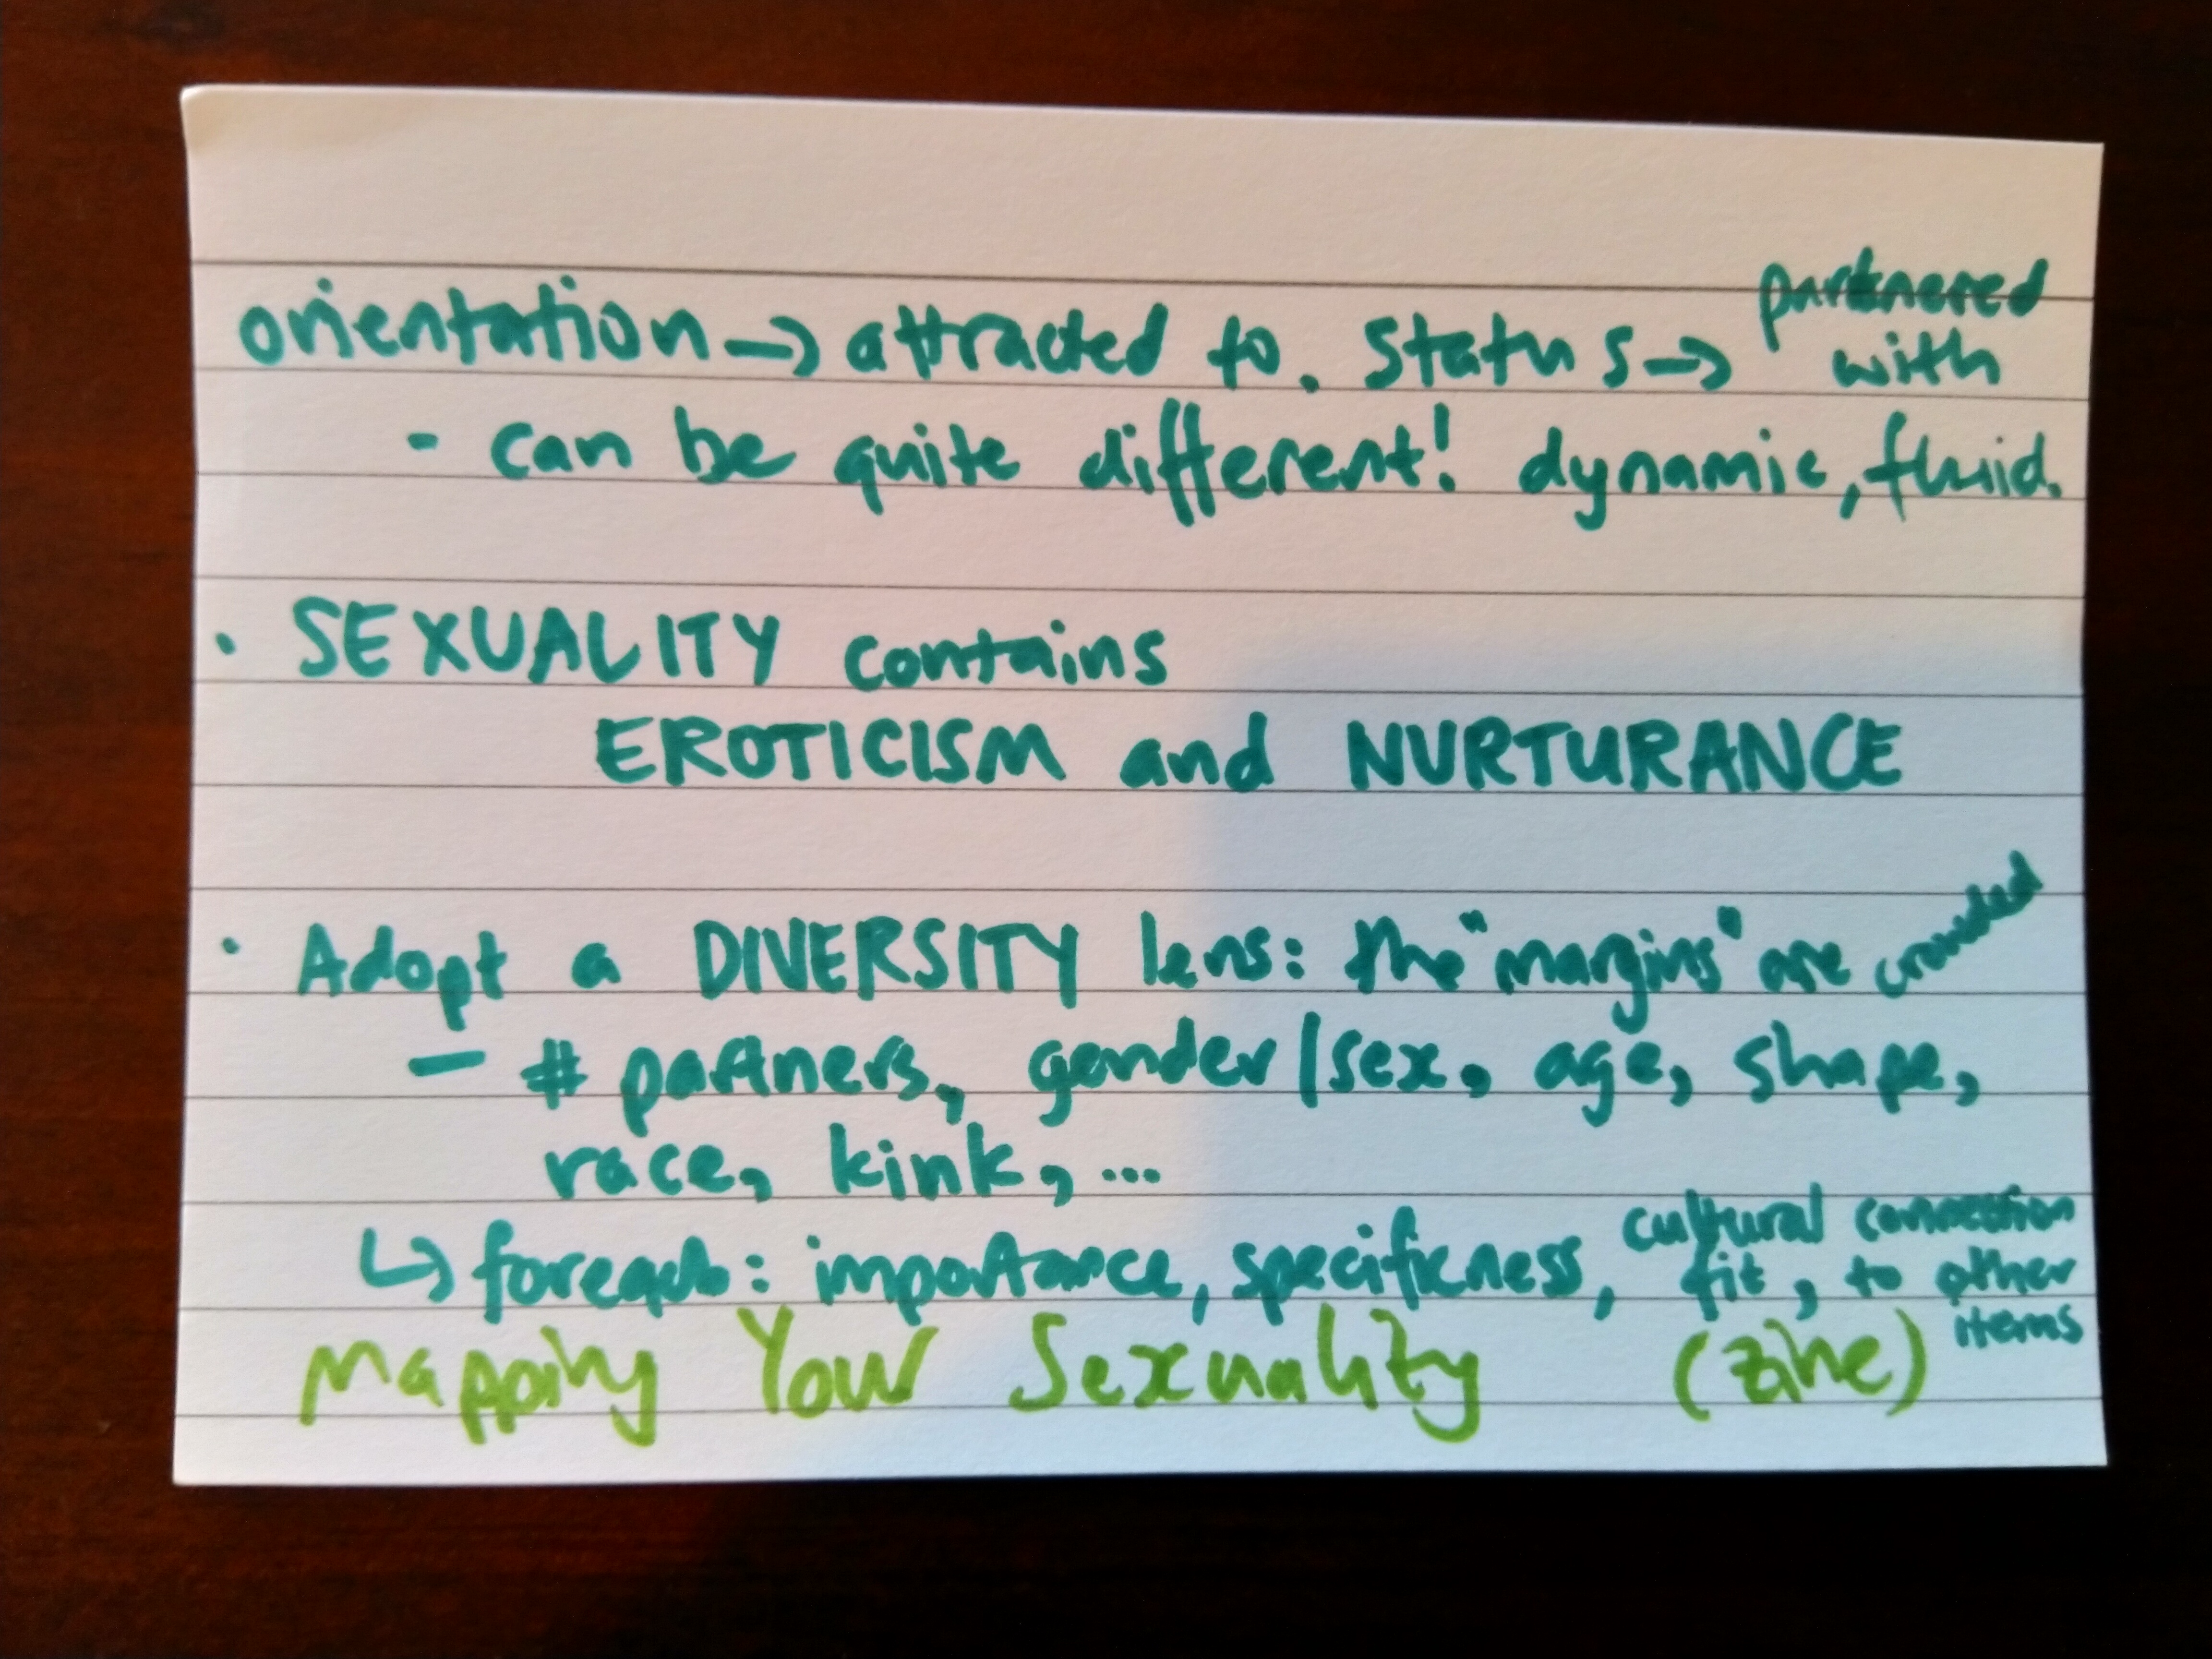 orientation → attracted to. Status → partnered with
- can be quite different! dynamic, fluid.
• SEXUALITY contains
EROTICISM and NURTURANCE
• Adopt a DIVERSITY lens: the "margins" are crowded
- # partners, gender/sex, age, shape,
race, kink, ...
↳ foreach: importance, specificness, cultural fit, connection to other items
Mapping Your Sexuality (zine)